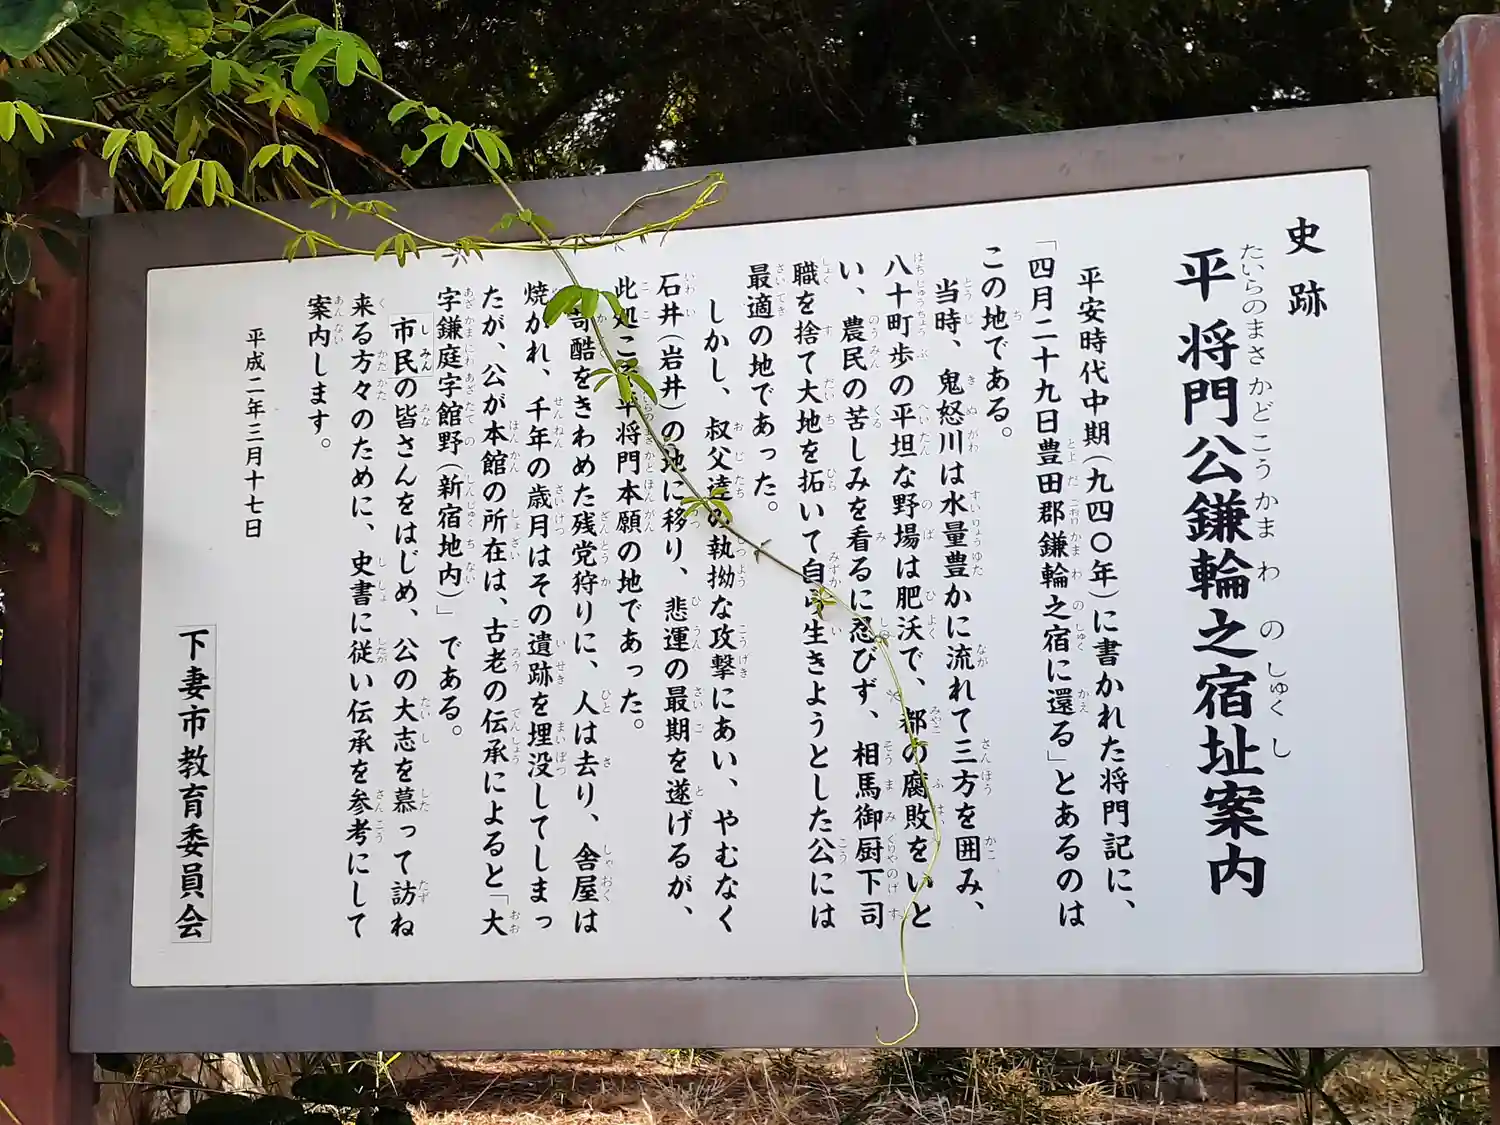 史跡
平将門公鎌輪之宿址案内
平安時代中期(九四〇年)に書かれた将門記に、
「四月二十九日豊田郡鎌輪之宿に還る」とあるのは
この地である。
当時、鬼怒川は水量豊かに流れて三方を囲み、
八十町歩の平坦な野場は肥沃で、都の腐敗をいと
い、農民の苦しみを看るに忍びず、相馬御厨下司
職を捨て大地を拓いて自ら生きようとした公には
最適の地であった。
しかし、叔父達の執拗な攻撃にあい、やむなく
石井(岩井)の地に移り、悲運の最期を遂げるが、
此処こそ平将門本願の地であった。
苛酷をきわめた残党狩りに、人は去り、舎屋は
焼かれ、千年の歳月はその遺跡を埋没してしまっ
たが、公が本館の所在は、古老の伝承によると「大
字鎌庭字館野(新宿地内)」である。
市民の皆さんをはじめ、公の大志を慕って訪ね
来る方々のために、史書に従い伝承を参考にして
案内します。
平成二年三月十七日
下妻市教育委員会